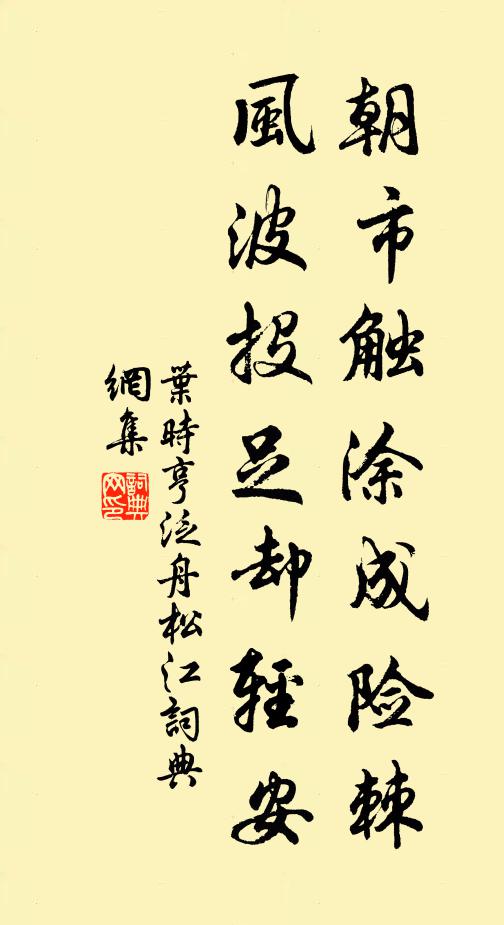 朝市触涂成险棘
風波投足却輕安
葉時亨泛舟松江詞典
網集
詞典
网印